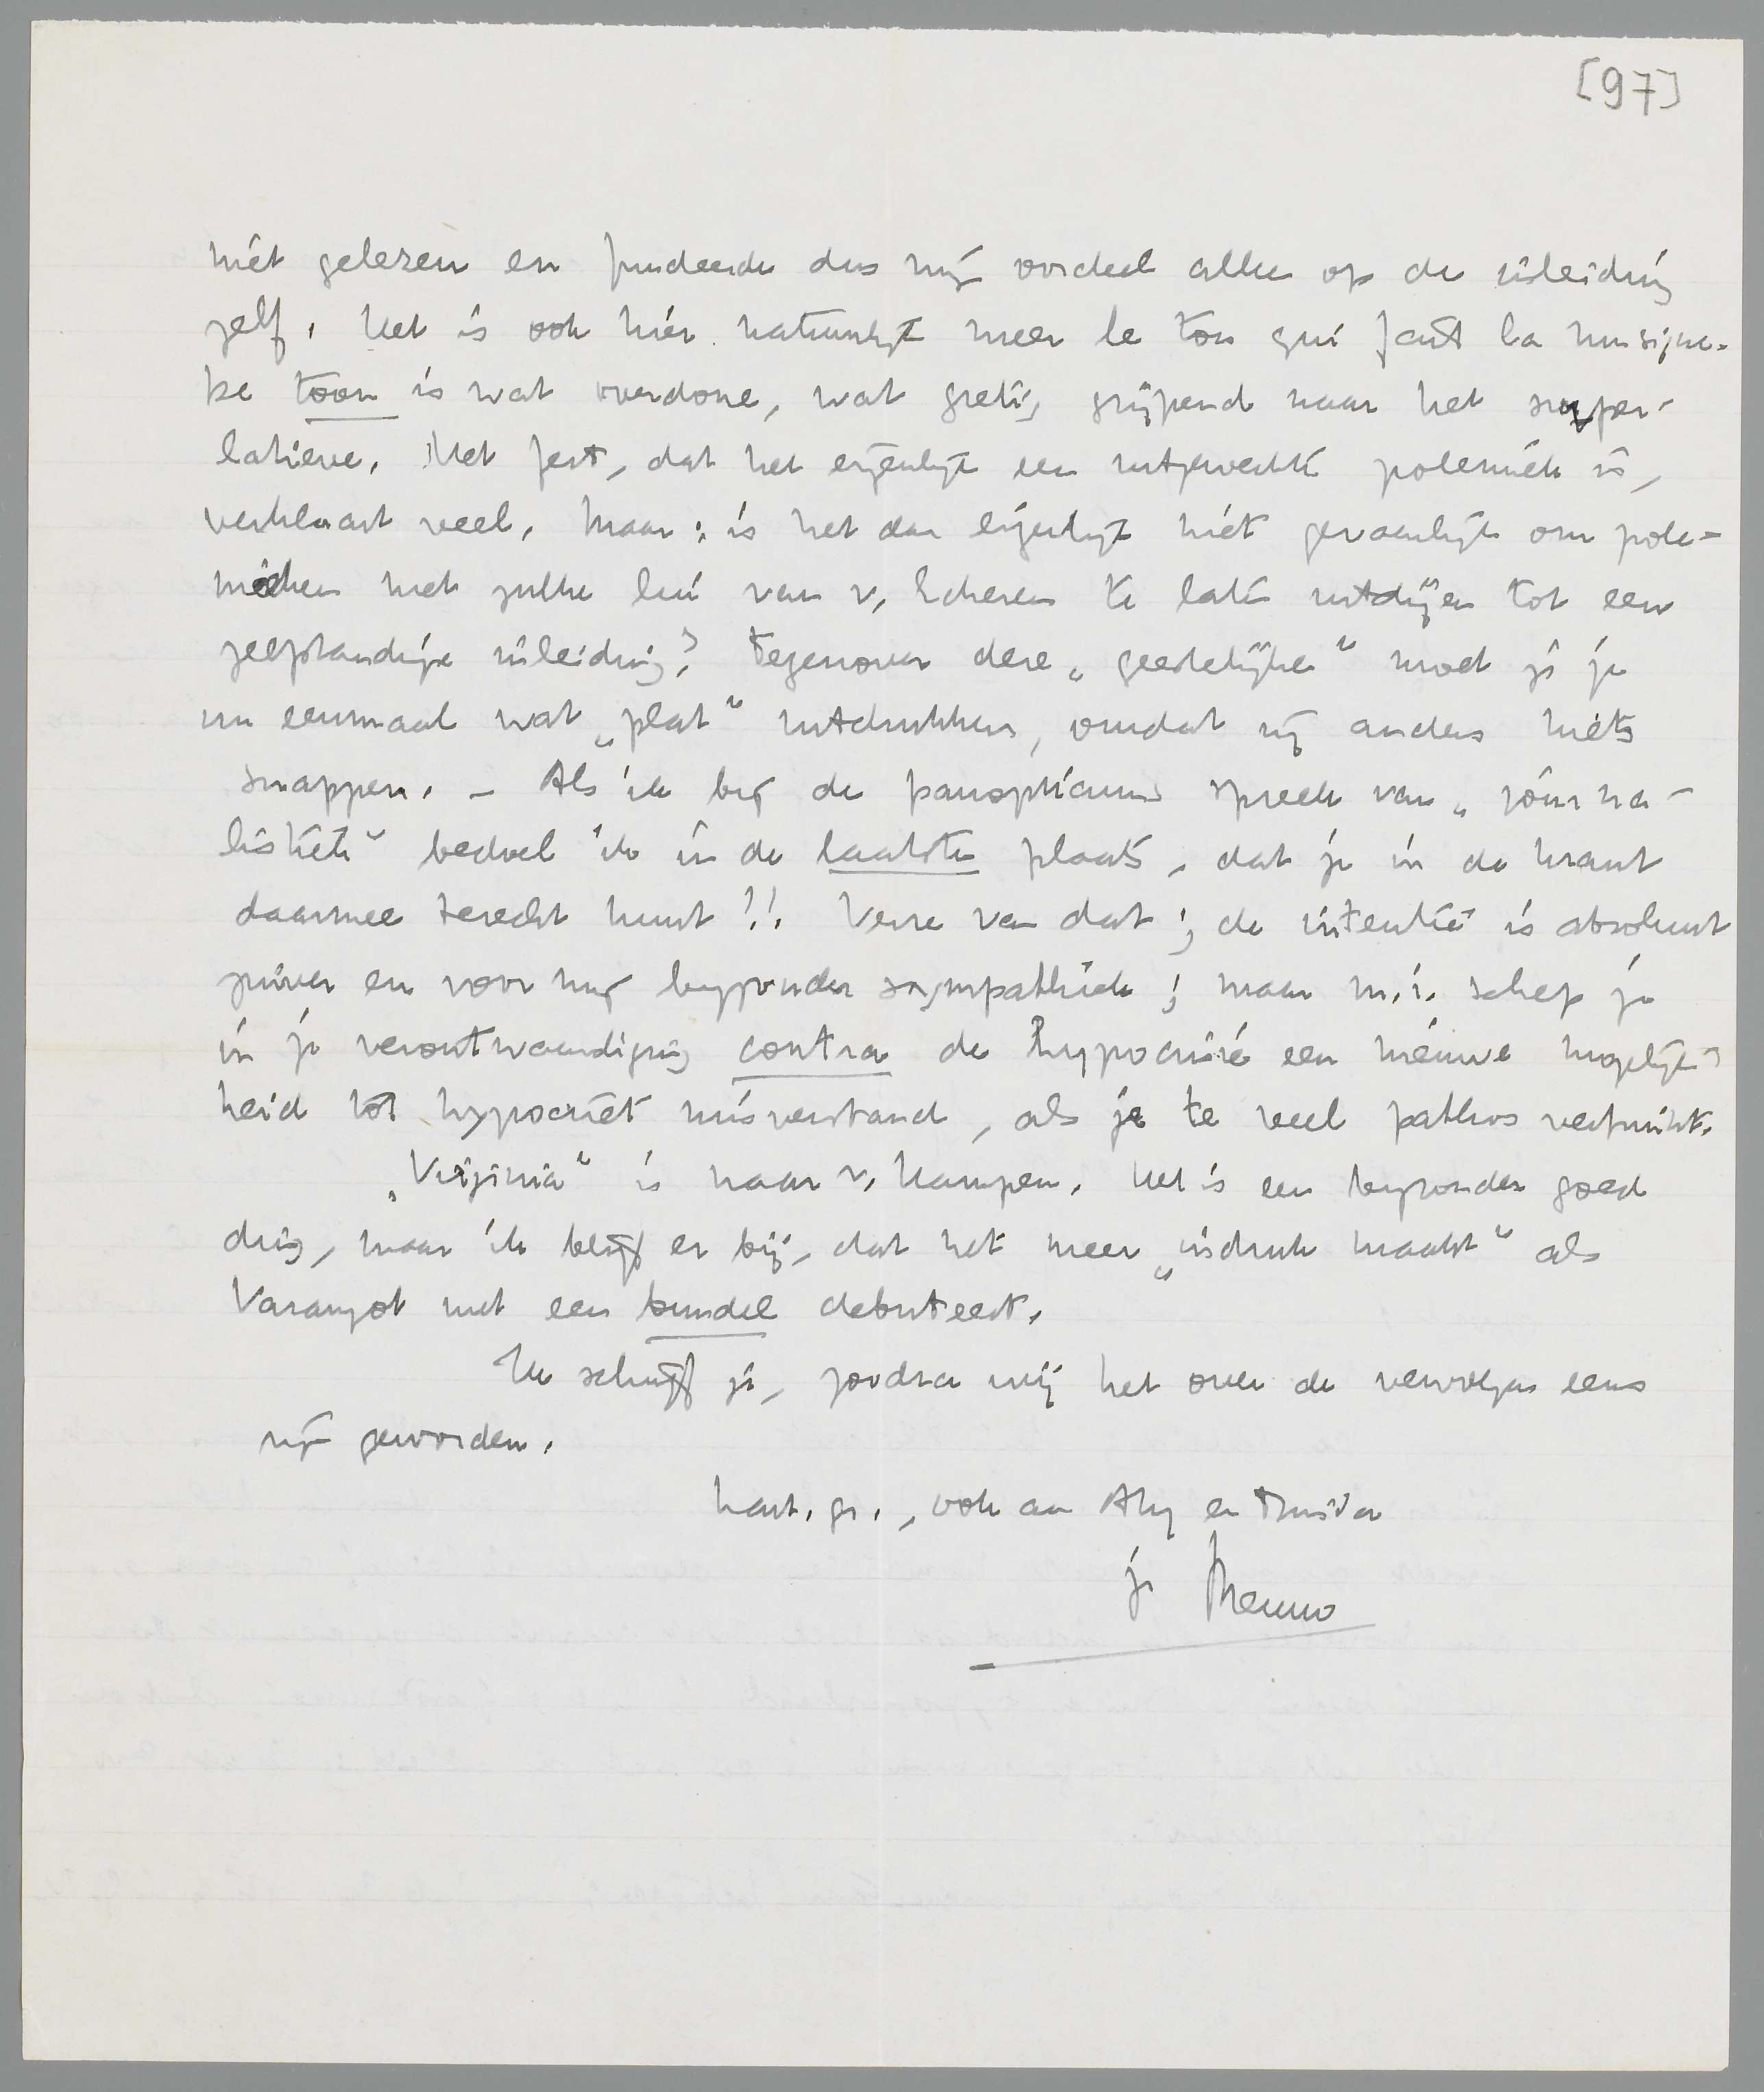 [97]
niet gelezen en fundeerde dus mijn oordeel alleen op de inleiding
zelf. Het is ook hier natuurlijk meer le ton qui fait la musique.
De toon is wat overdone, wat gretig grijpend naar het super-
latieve. Het feit, dat het eigenlijk een uitgewerkte polemiek is,
verklaart veel. Maar: is het dan eigenlijk niet gevaarlijk om pole-
mieken met zulke lui van v. Scheren te laten uitdijen tot een
zelfstandige inleiding? Tegenover deze „geestelijken" moet je je
nu eenmaal wat „plat" uitdrukken, omdat zij anders niets
snappen. - Als ik bij de panopticums spreek van „journa-
listiek" bedoel ik in de laatste plaats, dat je in de krant
daarmee terecht kunt!! Verre van dat; de intentie is absoluut
zuiver en voor mij bijzonder sympathiek; maar m.i. schep je
in je verontwaardiging contra de hypocrisie een nieuwe mogelijk-
heid tot hypocriet misverstand, als je te veel pathos verbruikt.
„Virginia" is naar v. Kampen. Het is een bijzonder goed
ding, maar ik blijf er bij, dat het meer „indruk maakt" als
Varangot met een bundel debuteert.
Ik schrijf je, zoodra wij het over de vervolgen eens
zijn geworden.
hart. gr., ook aan Aty en Truida
je Menno